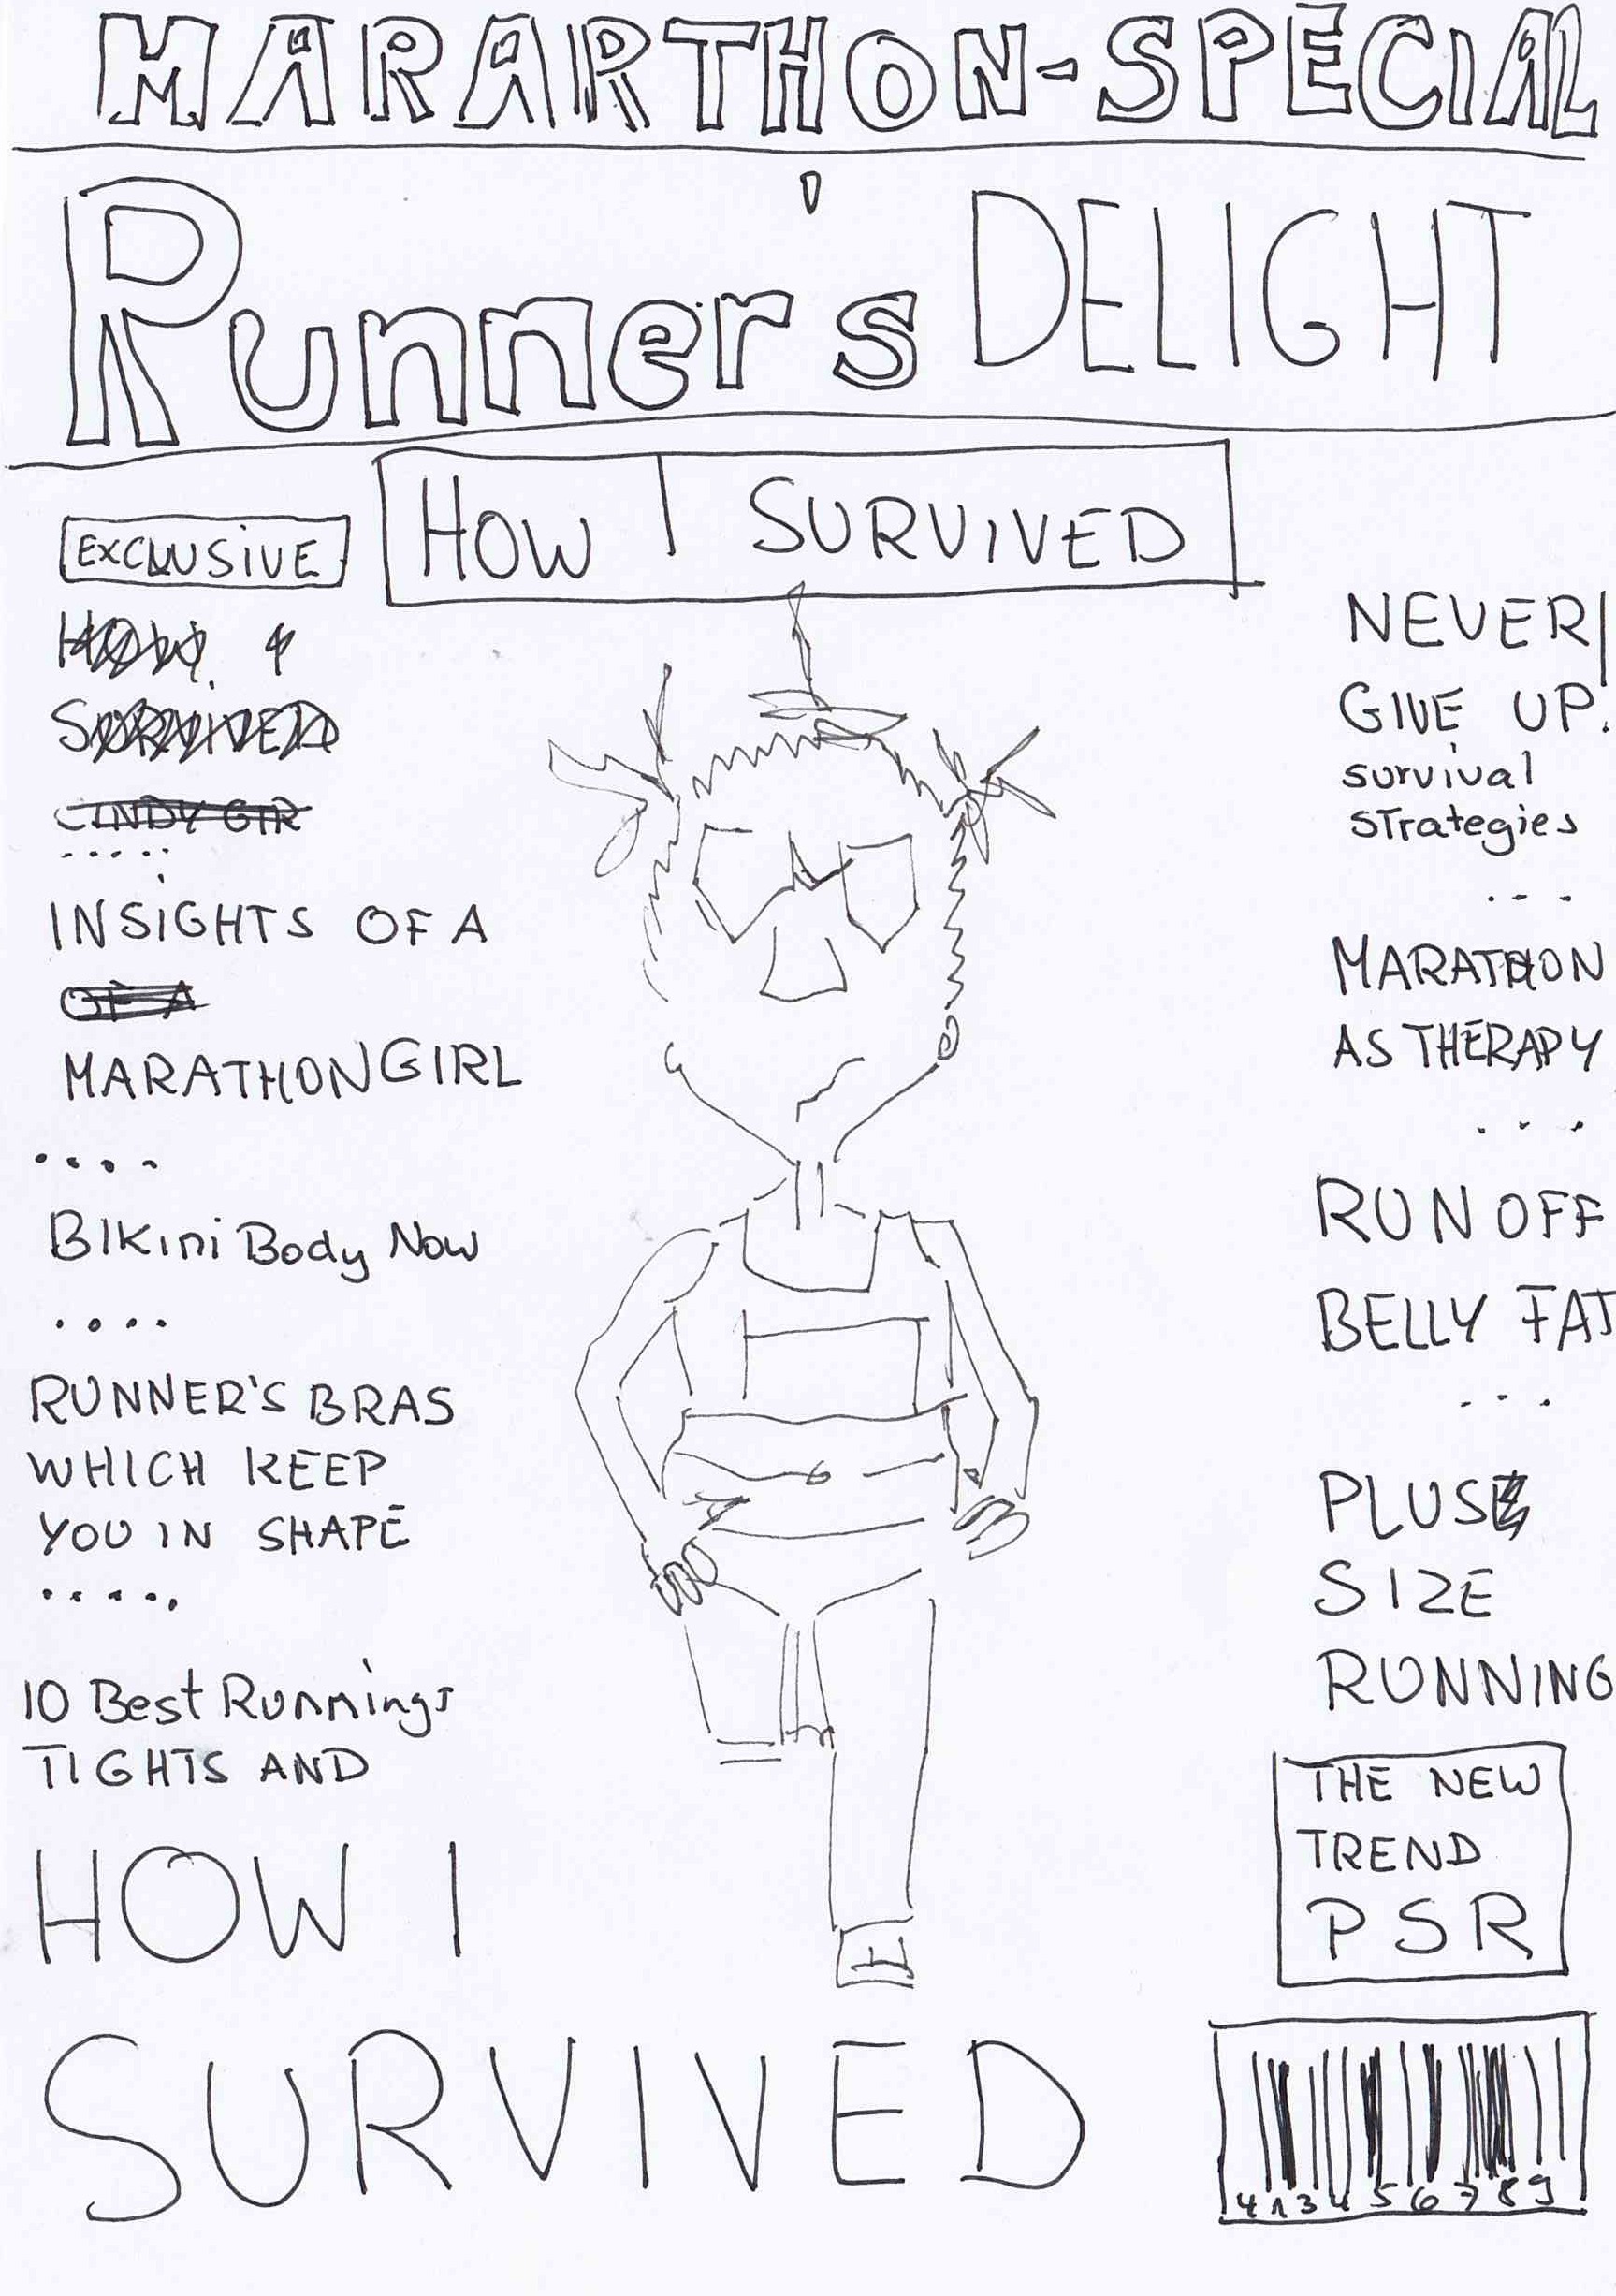 MARARTHON-SPECIAL
Runner's DELIGHT
HOW I SURVIVED
EXCLUSIVE
HOW I
SURVIVED
CINDY GIR
.....
INSIGHTS OF A
OF A
MARATHONGIRL
....
BIKini Body Now
....
RUNNER'S BRAS
WHICH KEEP
YOU IN SHAPE
.....
10 Best Runnings
TIGHTS AND
HOW I
SURVIVED
NEVER
GIVE UP!
survival
strategies
...
MARATHON
AS THERAPY
...
RUN OFF
BELLY FAT
...
PLUS
SIZE
RUNNING
THE NEW
TREND
PSR
413456789